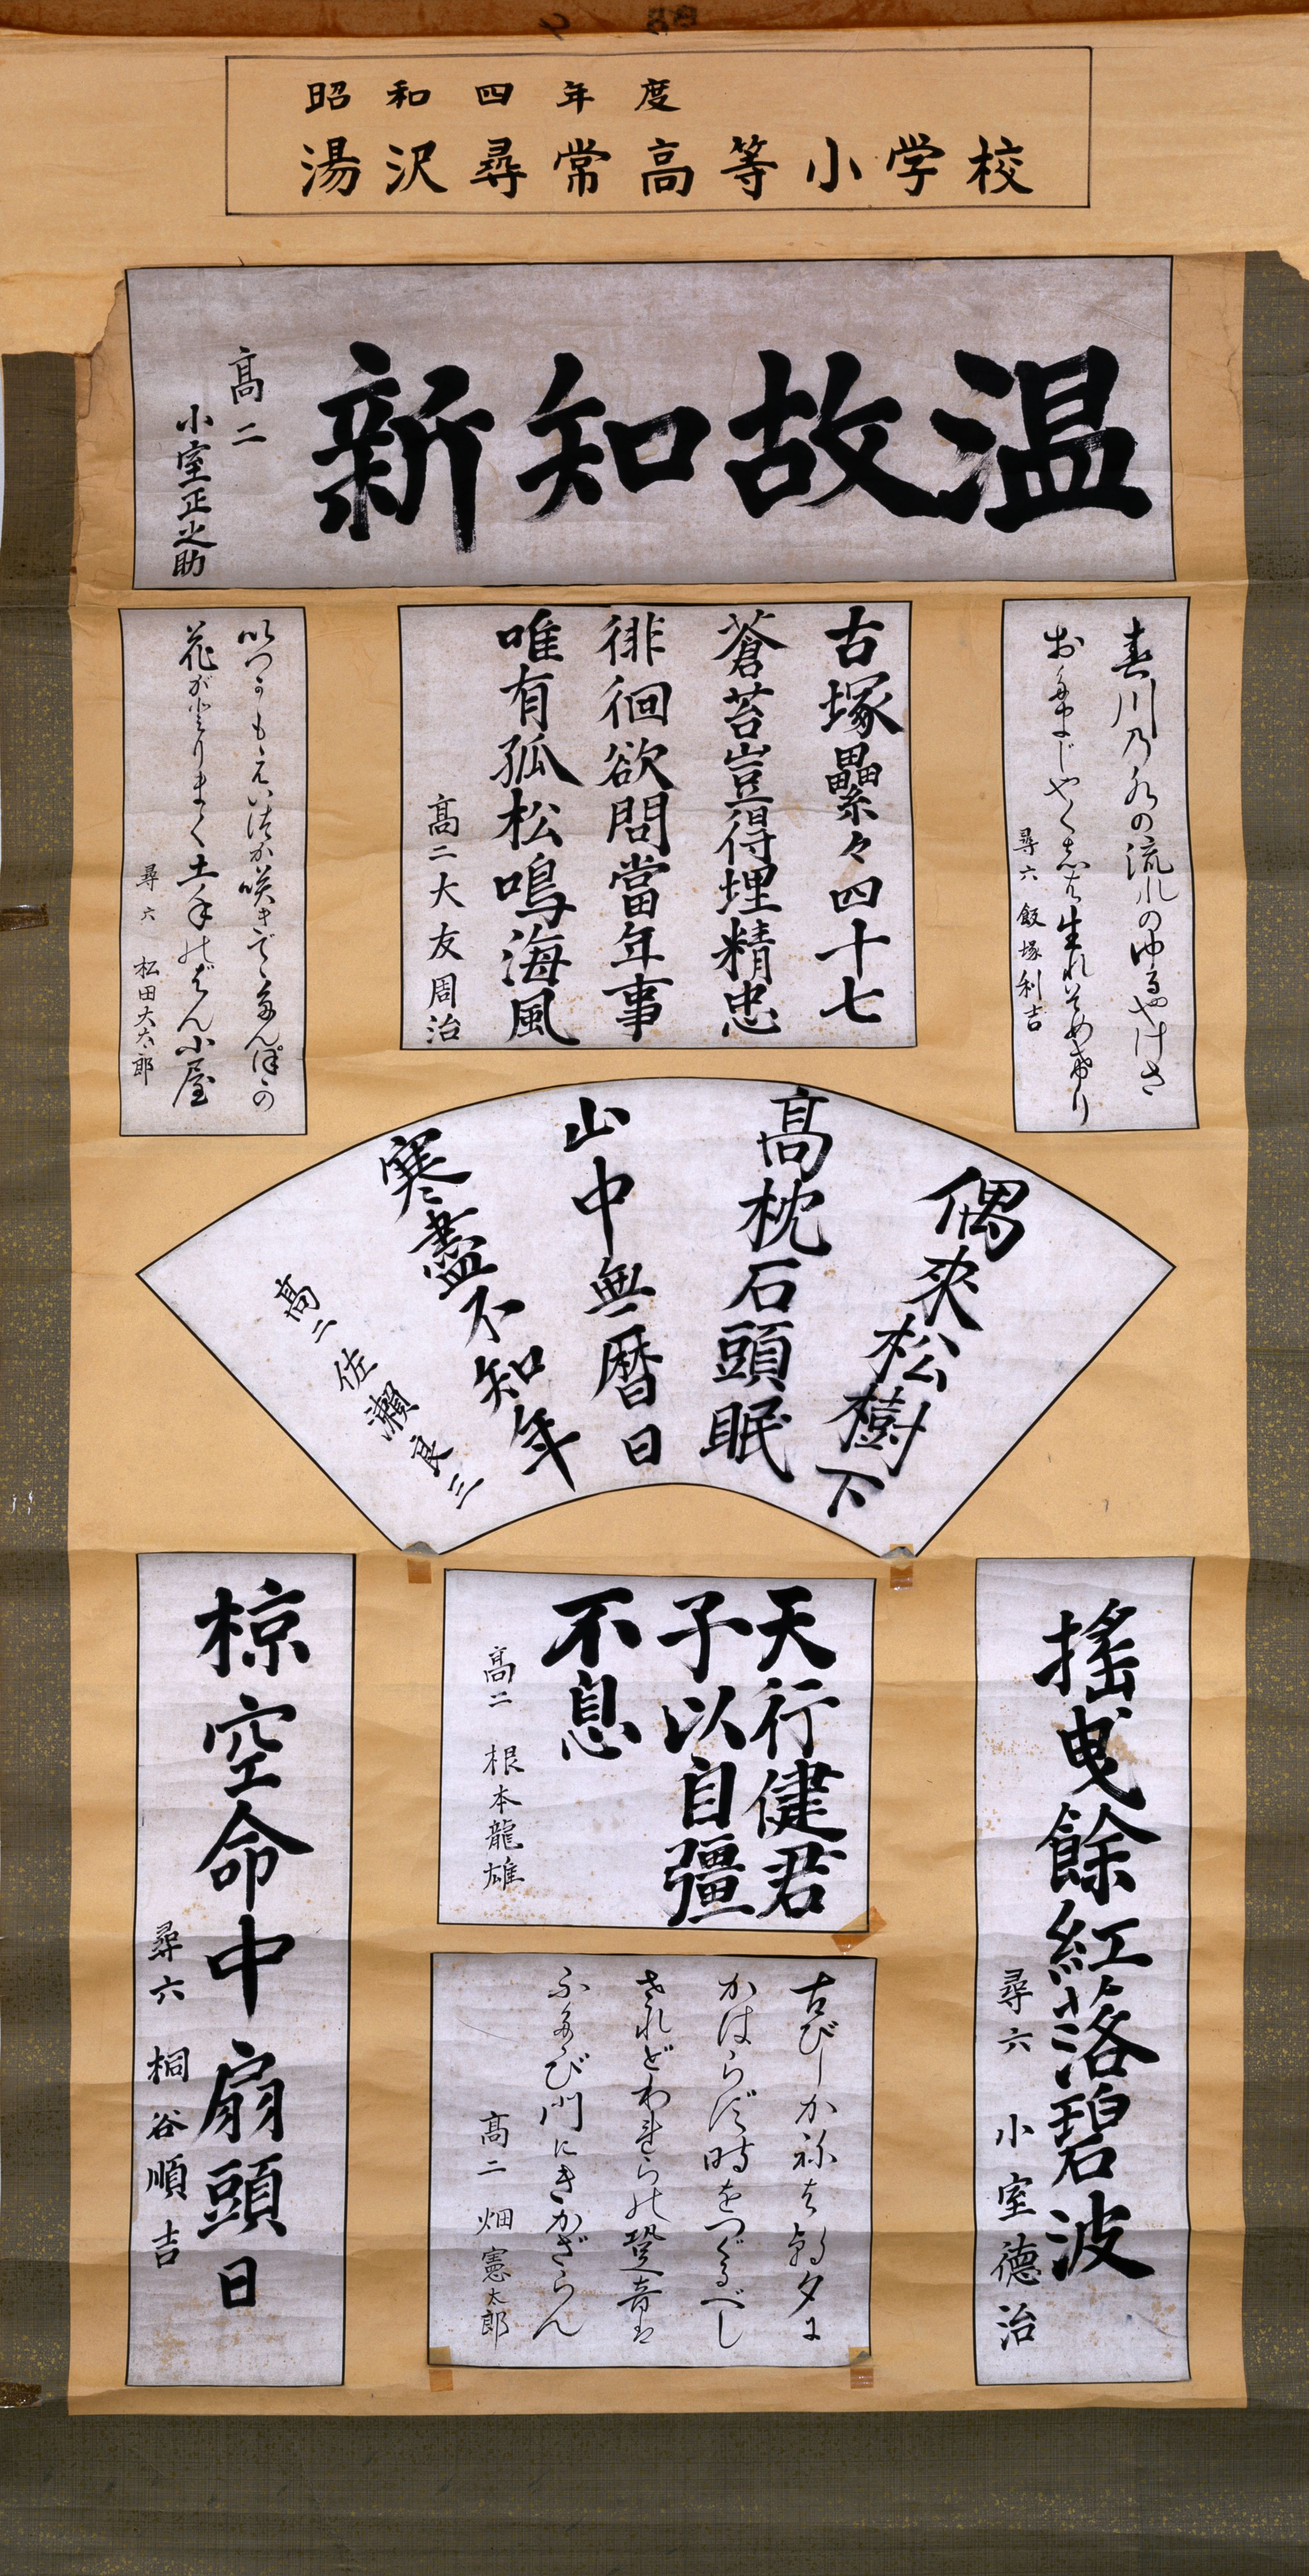 昭和四年度
湯沢尋常高等小学校
温故知新
髙二
小室正之助
春川乃水の流れのゆるやけさ
おたまじやくしは生れそめたり
尋六 飯塚利吉
古塚纍々四十七
蒼苔豈得埋精忠
徘徊欲問當年事
唯有孤松鳴海風
髙二大友周治
いつかもえいつか咲きでゝたんぽゝの
花がとりまく土手のばん小屋
尋六 松田大太郎
偶來松樹下
髙枕石頭眠
山中無暦日
寒盡不知年
髙二佐瀬良三
搖曳餘紅落碧波
尋六 小室徳治
天行健君
子以自彊
不息
髙二 根本龍雄
古びしかねは朝夕に
かはらず時をつぐるべし
されどわれらの跫音は
ふたゝび門にきかざらん
髙二 畑憲太郎
椋空命中扇頭日
尋六 桐谷順吉